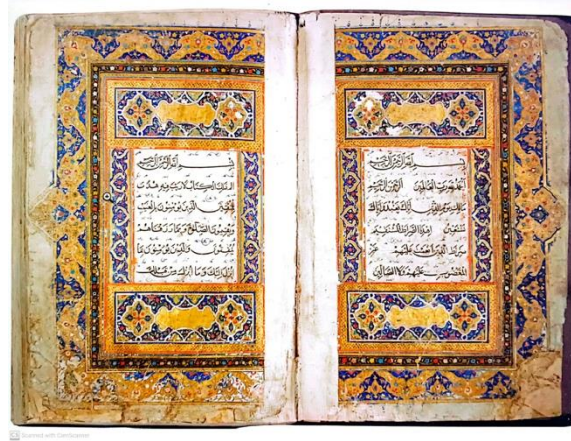 بسم الله الرحمن الرحيم
الحمد لله رب العالمين الرحمن الرحيم
مالك يوم الدين اياك نعبد واياك
نستعين اهدنا الصراط المستقيم
صراط الذين انعمت عليهم غير
المغضوب عليهم ولا الضالين
بسم الله الرحمن الرحيم
الم ذلك الكتاب لا ريب فيه هدى
للمتقين الذين يؤمنون بالغيب
ويقيمون الصلوة ومما رزقناهم
ينفقون والذين يؤمنون بما
انزل اليك وما انزل من قبلك
CS Scanned with CamScanner